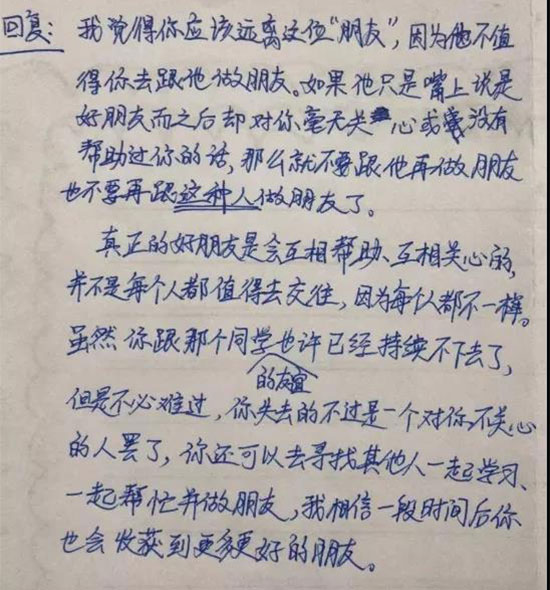 回复：我觉得你应该远离这位“朋友”，因为他不值
得你去跟他做朋友。如果他只是嘴上说是
好朋友而之后却对你毫无关心或没有
帮助过你的话，那么就不要跟他再做朋友
也不要再跟这种人做朋友了。
真正的好朋友是会互相帮助、互相关心的，
并不是每个人都值得去交往，因为每个人都不一样。
虽然你跟那个同学的友谊也许已经持续不下去了，
但是不必难过，你失去的不过是一个对你不关心
的人罢了，你还可以去寻找其他人一起学习、
一起帮忙并做朋友，我相信一段时间后你
也会收获到更多更好的朋友。